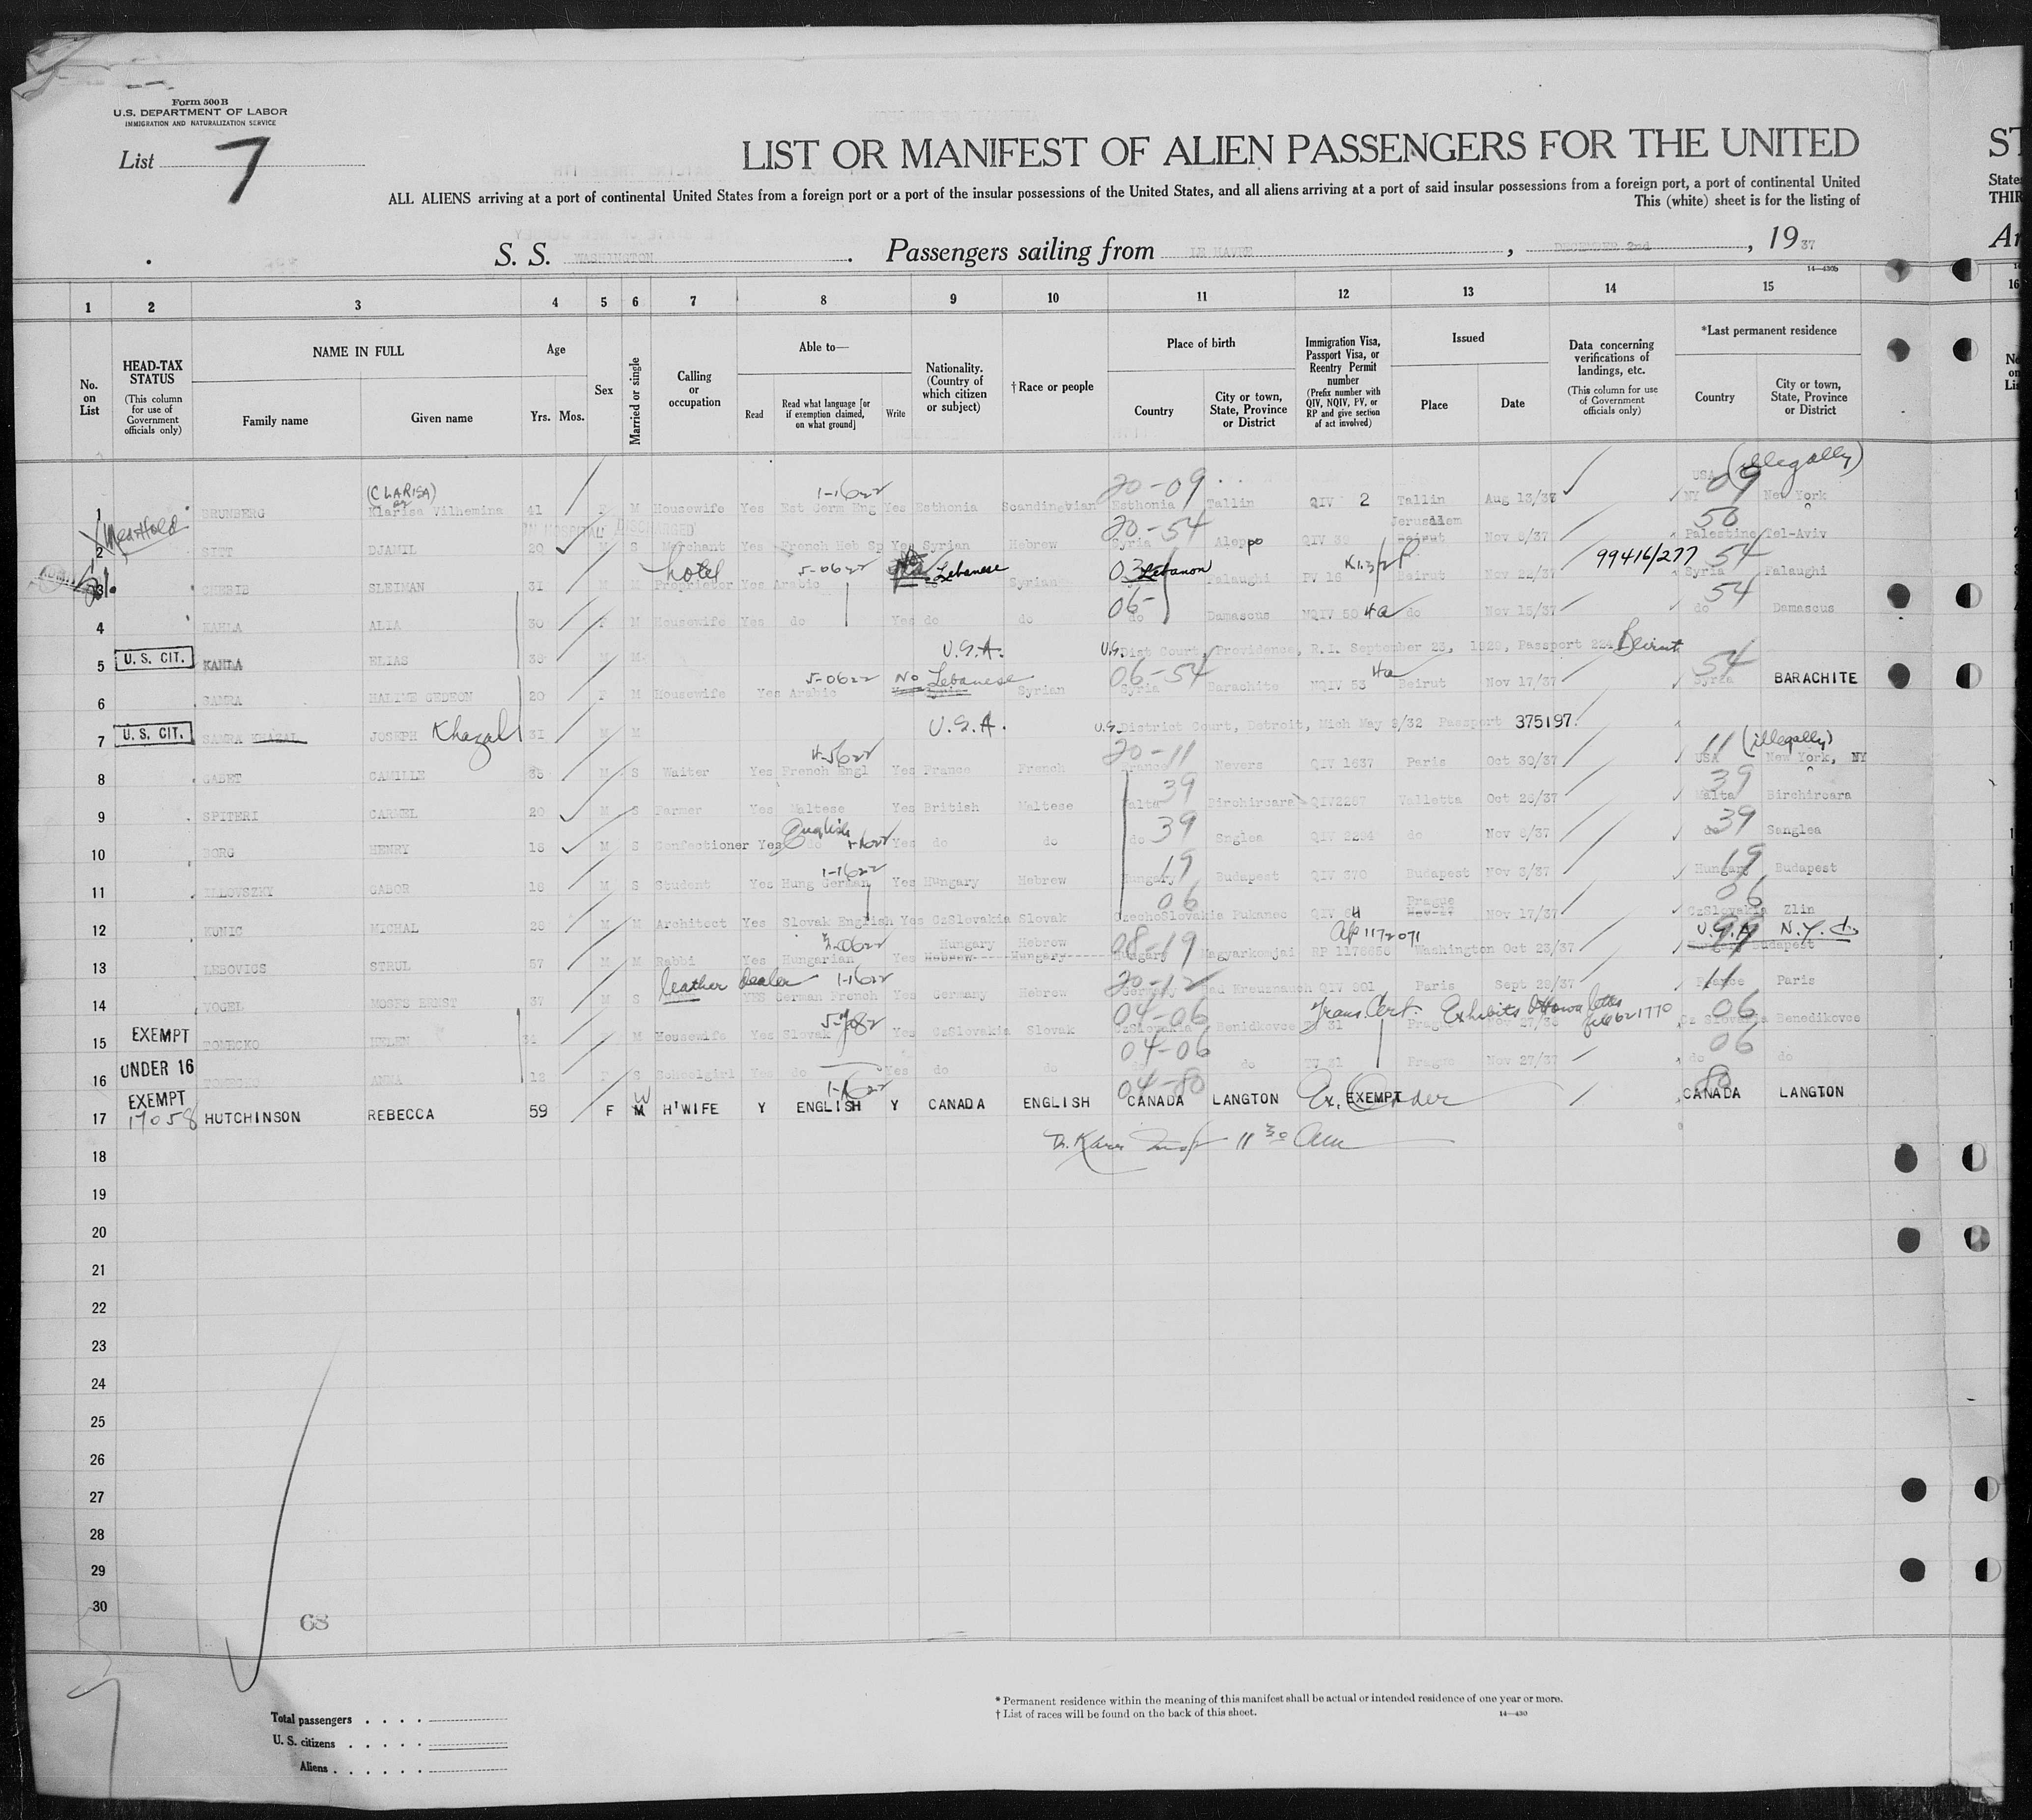 Form 500B
U.S. DEPARTMENT OF LABOR
IMMIGRATION AND NATURALIZATION SERVICE
List 7
LIST OR MANIFEST OF ALIEN PASSENGERS FOR THE UNITED ST
ALL ALIENS arriving at a port of continental United States from a foreign port or a port of the insular possessions of the United States, and all aliens arriving at a port of said insular possessions from a foreign port, a port of continental United State
This (white) sheet is for the listing of THIR
S. S. WASHINGTON Passengers sailing from LE HAVRE, DECEMBER 2nd, 19 37 Ar
14—430b
1 2 3 4 5 6 7 8 9 10 11 12 13 14 15 16
No. on List
HEAD-TAX STATUS (This column for use of Government officials only)
NAME IN FULL Family name Given name
Age Yrs. Mos.
Sex
Married or single
Calling or occupation
Able to— Read Read what language [or if exemption claimed, on what ground] Write
Nationality. (Country of which citizen or subject)
† Race or people
Place of birth Country City or town, State, Province or District
Immigration Visa, Passport Visa, or Reentry Permit number (Prefix number with QIV, NQIV, PV, or RP and give section of act involved)
Issued Place Date
Data concerning verifications of landings, etc. (This column for use of Government officials only)
*Last permanent residence Country City or town, State, Province or District
(CLARISA) 1-1622 20-09 USA (illegally) 09
1 BRUNBERG Klarisa Vilhemina 41 F M Housewife Yes Est Germ Eng Yes Esthonia Scandinavian Esthonia Tallin QIV 2 Tallin Aug 13/37 NY New York
IN HOSPITAL DISCHARGED 20-54 Jerusalem 50
2 SITT DJAMIL 20 M S Merchant Yes French Heb Sp Yes Syrian Hebrew Syria Aleppo QIV 39 Beirut Nov 5/37 Palestine Tel-Aviv
hotel 5-0622 No Lebanese 03 Lebanon 99416/277 54
3 CHEBIB SLEIMAN 31 M M Proprietor Yes Arabic Syrian Falaughi PV 16 Beirut Nov 22/37 Syria Falaughi
06- 54
4 KAHLA ALIA 30 F M Housewife Yes do Yes do do do Damascus NQIV 50 4a do Nov 15/37 do Damascus
5 U. S. CIT. KAHLA ELIAS 38 M M U.S.A. U.S. Dist Court, Providence, R.I. September 23, 1929, Passport 224 Beirut
5-0622 No Lebanese 06-54 4a 54
6 SAMRA HALIME GEDEON 20 F M Housewife Yes Arabic Syria Syrian Syria Barachite NQIV 53 Beirut Nov 17/37 Syria BARACHITE
7 U. S. CIT. SAMRA KHAZAL JOSEPH Khazal 31 M M U.S.A. U.S. District Court, Detroit, Mich May 9/32 Passport 375197.
4-5622 20-11 11 (illegally)
8 GABET CAMILLE 35 M S Waiter Yes French Engl Yes France French France Nevers QIV 1637 Paris Oct 30/37 USA New York, NY
39 39
9 SPITERI CARMEL 20 M S Farmer Yes Maltese Yes British Maltese Malta Birchircara QIV2287 Valletta Oct 26/37 Malta Birchircara
English 39 39
10 BORG HENRY 18 M S Confectioner Yes do Yes do do do Snglea QIV 2294 do Nov 5/37 do Sanglea
1-1622 19 19
11 ILLOVSZKY GABOR 18 M S Student Yes Hung German Yes Hungary Hebrew Hungary Budapest QIV 670 Budapest Nov 3/37 Hungary Budapest
06 Prague 06
12 KUNIC MICHAL 28 M M Architect Yes Slovak English Yes CzSlovakia Slovak CzechoSlovakia Pukanec QIV 64 Nov 17/37 CzSlovakia Zlin
3-0622 Hungary Hebrew 08-19 1172071 U.S.A. 99 N.Y.C.
13 LEBOVICS STRUL 57 M M Rabbi Yes Hungarian Yes Hebrew Hungary Hungary Magyarkomjai RP 1178656 Washington Oct 23/37 Hungary Budapest
leather dealer 1-1622 20-12 11
14 VOGEL MOSES ERNST 37 M S YES German French Yes Germany Hebrew Germany Bad Kreuznauch QIV 901 Paris Sept 29/37 France Paris
04-06 Trans. Cert. Exhibits Ottawa letter 06
15 EXEMPT TOMECKO HELEN 31 M Housewife Yes Slovak Yes CzSlovakia Slovak CzSlovakia Benidkovce 31 Cz Slovakia Benedikovce
04-06 06
16 UNDER 16 TOMECKO ANNA 12 F S Schoolgirl Yes do Yes do do do Prague Nov 27/37 do do
1-1622 W 04-80 80
17 EXEMPT 17058 HUTCHINSON REBECCA 59 F M H'WIFE Y ENGLISH Y CANADA ENGLISH CANADA LANGTON Ex. EXEMPT Order CANADA LANGTON
11 30 am
18
19
20
21
22
23
24
25
26
27
28
29
30
68
Total passengers
U. S. citizens
Aliens
* Permanent residence within the meaning of this manifest shall be actual or intended residence of one year or more.
† List of races will be found on the back of this sheet.
14—430